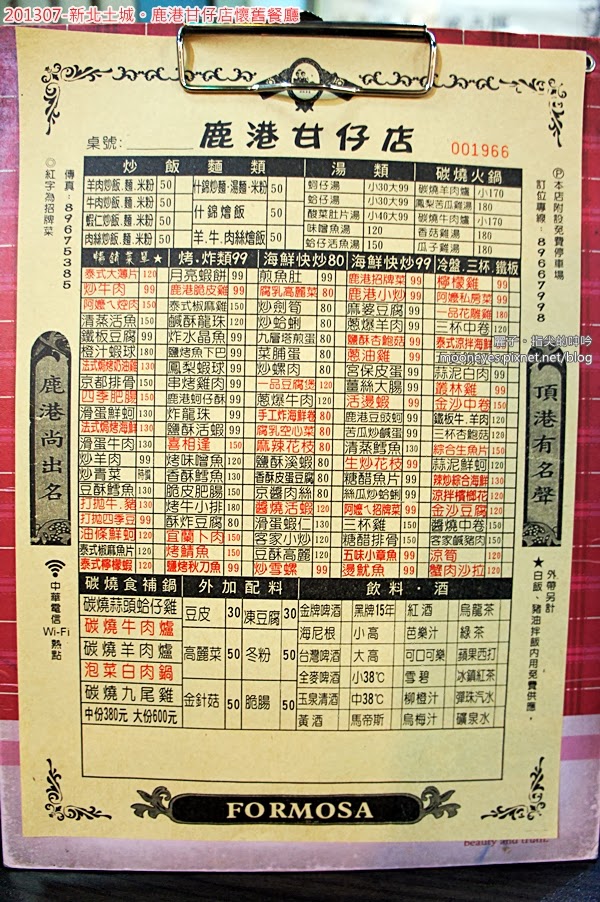 201307-新北土城。鹿港甘仔店懷舊餐廳
桌號:
鹿港甘仔店
001966
傳真:89675385
◎紅字為招牌菜
Ⓟ本店附設免費停車場
訂位專線:89667998
炒飯麵類
湯類
碳燒火鍋
羊肉炒飯.麵.米粉 50 什錦炒麵·湯麵·米粉 50
牛肉炒飯.麵.米粉 50 什錦燴飯 50
蝦仁炒飯.麵.米粉 50
肉絲炒飯.麵.米粉 50 羊.牛.肉絲燴飯 50
蚵仔湯 小30大99 碳燒羊肉爐 小170
蛤仔湯 小30大99 鳳梨苦瓜雞湯 180
酸菜肚片湯 小40大99 碳燒牛肉爐 小170
味噌魚湯 120 香菇雞湯 180
蛤仔石活魚湯 150 瓜子雞湯 180
烤.炸類99 海鮮快炒80 海鮮快炒99 冷盤.三杯.鐵板
泰式大薄片 120 月亮蝦餅 99 煎魚肚 99 鹿港招牌菜 99 檸檬雞 99
炒牛肉 99 鹿港脆皮雞 99 腐乳高麗菜 80 鹿港小炒 99 阿嬤私房菜 99
泰式椒麻雞 99 炒劍筍 80 麻婆豆腐 一品花雕雞
清蒸活魚 150 鹹酥龍珠 炒蛤蜊 80 蔥爆羊肉 99 三杯中卷 120
鐵板豆腐 炸水晶魚 九層塔煎蛋 80 鹽酥杏鮑菇 泰式涼拌海鮮
橙汁蝦球 180 鹽烤魚下巴 菜脯蛋 80 蔥油雞 99
法式焗烤奶油雞 鳳梨蝦球 炒螺肉 宮保皮蛋 蒜泥白肉 99
京都排骨 串烤雞肉 一品豆腐煲 薑絲大腸 叢林雞 99
四季肥腸 鹿港蚵仔酥 蔥爆牛肉 活燙蝦 金沙中卷
滑蛋鮮蚵 炸龍珠 手工炸海鮮卷 鹿港豆豉蚵 鐵板牛.羊肉
法式焗烤海鮮 鹽酥活蝦 腐乳空心菜 苦瓜炒鹹蛋 三杯杏鮑菇
滑蛋牛肉 喜相逢 麻辣花枝 清蒸鱈魚 綜合生魚片
炒羊肉 99 烤味噌魚 鹽酥溪蝦 生炒花枝 蒜泥鮮蚵
炒青菜 時價 炸鱈魚 香酥皮蛋豆腐 糖醋魚片 辣炒綜合海鮮
豆酥鱈魚 脆皮肥腸 京醬肉絲 絲瓜炒蛤蜊 涼拌檳榔花
打拋牛.豬 烤牛小排 醬燒活蝦 阿嬤ㄟ招牌菜 金沙豆腐
打拋四季豆 酥炸豆腐 滑蛋蝦仁 三杯雞 醬燒中卷
油條鮮蚵 宜蘭卜肉 客家小炒 糖醋排骨 客家鹹豬肉
泰式椒麻魚片 烤鯖魚 豆酥高麗 五味小章魚 涼筍
泰式檸檬蝦 鹽烤秋刀魚 炒雪螺 燙魷魚 蟹肉沙拉
鹿港尚出名
頂港有名聲
中華電信Wi-Fi熱點
★白飯、豬油拌飯內用免費供應。
外帶另計
麗子。指尖的呻吟
mooneyes.pixnet.net/blog
碳燒食補鍋 外加配料 飲料.酒
碳燒蒜頭蛤仔雞 豆皮 30 凍豆腐 30 金牌啤酒 黑牌15年 紅酒 烏龍茶
碳燒牛肉爐 海尼根 小高 芭樂汁 綠茶
碳燒羊肉爐 高麗菜 50 冬粉 50 台灣啤酒 大高 可口可樂 蘋果西打
泡菜白肉鍋 全麥啤酒 小38℃ 雪碧 冰鎮紅茶
碳燒九尾雞 金針菇 50 脆腸 50 玉泉清酒 中38℃ 柳橙汁 彈珠汽水
中份380元 大份600元 黃酒 馬帝斯 烏梅汁 礦泉水
FORMOSA
beauty and truth.